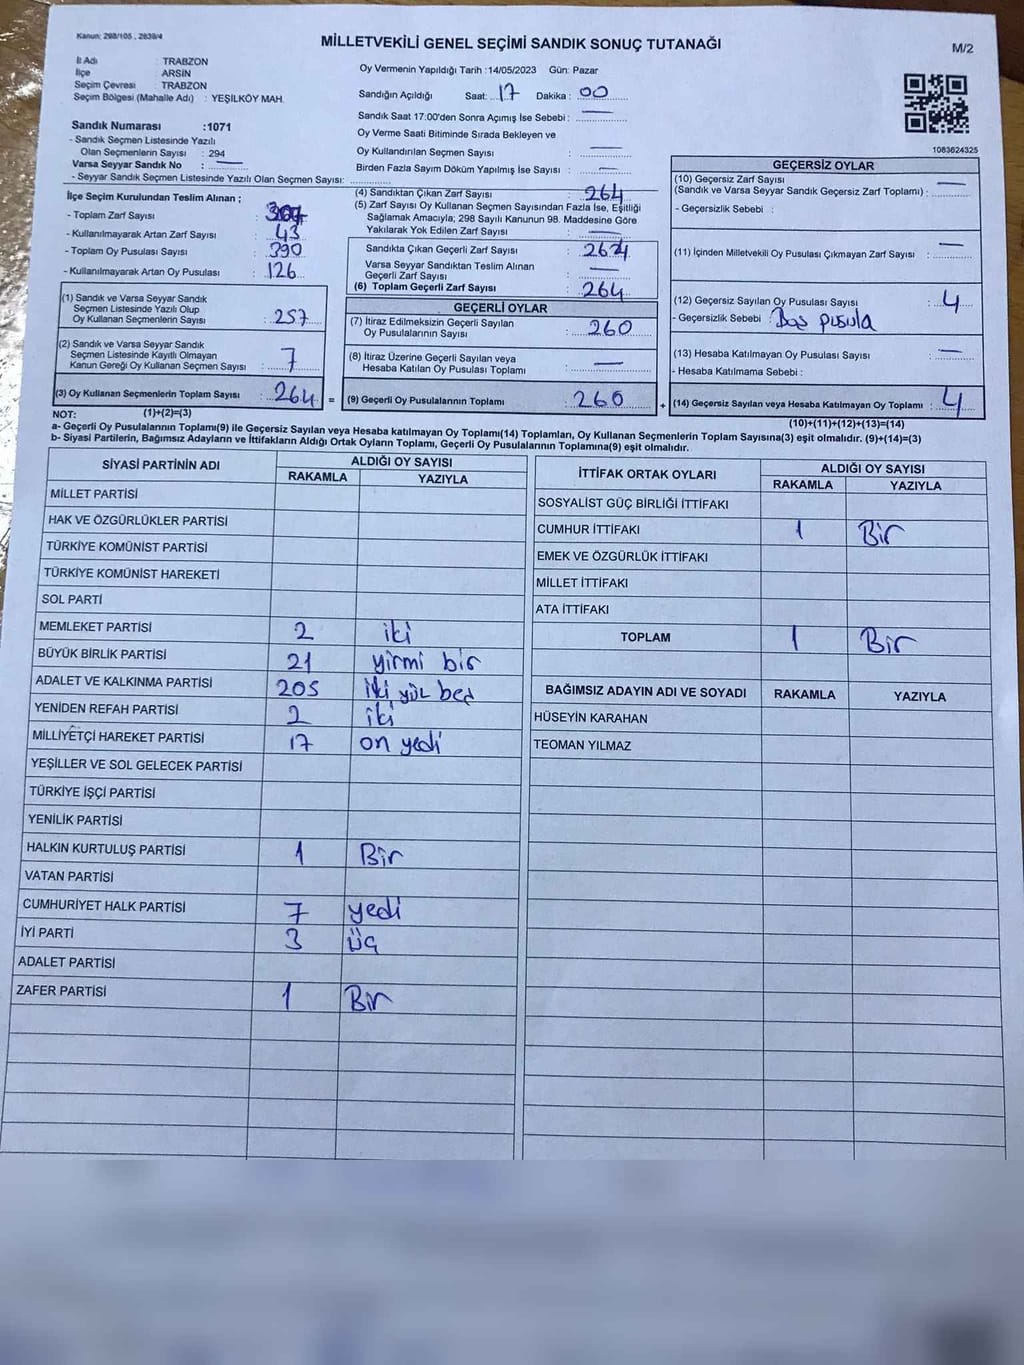 Kanun: 298/105 , 2839/4
MİLLETVEKİLİ GENEL SEÇİMİ SANDIK SONUÇ TUTANAĞI
M/2
İl Adı : TRABZON
İlçe : ARSİN
Seçim Çevresi : TRABZON
Seçim Bölgesi (Mahalle Adı) : YEŞİLKÖY MAH.
Sandık Numarası :1071
- Sandık Seçmen Listesinde Yazılı
Olan Seçmenlerin Sayısı : 294
Varsa Seyyar Sandık No : —
- Seyyar Sandık Seçmen Listesinde Yazılı Olan Seçmen Sayısı:
Oy Vermenin Yapıldığı Tarih :14/05/2023 Gün: Pazar
Sandığın Açıldığı Saat: 17 Dakika : 00
Sandık Saat 17:00'den Sonra Açımış İse Sebebi : —
Oy Verme Saati Bitiminde Sırada Bekleyen ve
Oy Kullandırılan Seçmen Sayısı : —
Birden Fazla Sayım Döküm Yapılmış İse Sayısı : —
1083624325
İlçe Seçim Kurulundan Teslim Alınan ;
- Toplam Zarf Sayısı :
- Kullanılmayarak Artan Zarf Sayısı : 43
- Toplam Oy Pusulası Sayısı : 390
- Kullanılmayarak Artan Oy Pusulası : 126
(1) Sandık ve Varsa Seyyar Sandık
Seçmen Listesinde Yazılı Olup
Oy Kullanan Seçmenlerin Sayısı : 257
(2) Sandık ve Varsa Seyyar Sandık
Seçmen Listesinde Kayıtlı Olmayan
Kanun Gereği Oy Kullanan Seçmen Sayısı : 7
(3) Oy Kullanan Seçmenlerin Toplam Sayısı : 264 =
(4) Sandıktan Çıkan Zarf Sayısı : 264
(5) Zarf Sayısı Oy Kullanan Seçmen Sayısından Fazla İse, Eşitliği
Sağlamak Amacıyla; 298 Sayılı Kanunun 98. Maddesine Göre
Yakılarak Yok Edilen Zarf Sayısı : —
Sandıkta Çıkan Geçerli Zarf Sayısı : 264
Varsa Seyyar Sandıktan Teslim Alınan
Geçerli Zarf Sayısı : —
(6) Toplam Geçerli Zarf Sayısı : 264
GEÇERLİ OYLAR
(7) İtiraz Edilmeksizin Geçerli Sayılan
Oy Pusulalarının Sayısı : 260
(8) İtiraz Üzerine Geçerli Sayılan veya
Hesaba Katılan Oy Pusulası Toplamı : —
(9) Geçerli Oy Pusulalarının Toplamı : 260 +
GEÇERSİZ OYLAR
(10) Geçersiz Zarf Sayısı
(Sandık ve Varsa Seyyar Sandık Geçersiz Zarf Toplamı) : —
- Geçersizlik Sebebi :
(11) İçinden Milletvekili Oy Pusulası Çıkmayan Zarf Sayısı : —
(12) Geçersiz Sayılan Oy Pusulası Sayısı : 4
- Geçersizlik Sebebi : Boş pusula
(13) Hesaba Katılmayan Oy Pusulası Sayısı : —
- Hesaba Katılmama Sebebi :
(14) Geçersiz Sayılan veya Hesaba Katılmayan Oy Toplamı : 4
NOT: (1)+(2)=(3)
(10)+(11)+(12)+(13)=(14)
a- Geçerli Oy Pusulasının Toplam(9) ile Geçersiz Sayılan veya Hesaba katılmayan Oy Toplamı(14) Toplamları, Oy Kullanan Seçmenlerin Toplam Sayısına(3) eşit olmalıdır. (9)+(14)=(3)
b- Siyasi Partilerin, Bağımsız Adayların ve İttifakların Aldığı Ortak Oyların Toplamı, Geçerli Oy Pusulalarının Toplamına(9) eşit olmalıdır.
SİYASİ PARTİNİN ADI ALDIĞI OY SAYISI
RAKAMLA YAZIYLA
MİLLET PARTİSİ
HAK VE ÖZGÜRLÜKLER PARTİSİ
TÜRKİYE KOMÜNİST PARTİSİ
TÜRKİYE KOMÜNİST HAREKETİ
SOL PARTİ
MEMLEKET PARTİSİ 2 iki
BÜYÜK BİRLİK PARTİSİ 21 yirmi bir
ADALET VE KALKINMA PARTİSİ 205 iki yüz beş
YENİDEN REFAH PARTİSİ 2 iki
MİLLİYETÇİ HAREKET PARTİSİ 17 on yedi
YEŞİLLER VE SOL GELECEK PARTİSİ
TÜRKİYE İŞÇİ PARTİSİ
YENİLİK PARTİSİ
HALKIN KURTULUŞ PARTİSİ 1 Bir
VATAN PARTİSİ
CUMHURİYET HALK PARTİSİ 7 yedi
İYİ PARTİ 3 üç
ADALET PARTİSİ
ZAFER PARTİSİ 1 Bir
İTTİFAK ORTAK OYLARI ALDIĞI OY SAYISI
RAKAMLA YAZIYLA
SOSYALİST GÜÇ BİRLİĞİ İTTİFAKI
CUMHUR İTTİFAKI 1 Bir
EMEK VE ÖZGÜRLÜK İTTİFAKI
MİLLET İTTİFAKI
ATA İTTİFAKI
TOPLAM 1 Bir
BAĞIMSIZ ADAYIN ADI VE SOYADI RAKAMLA YAZIYLA
HÜSEYİN KARAHAN
TEOMAN YILMAZ